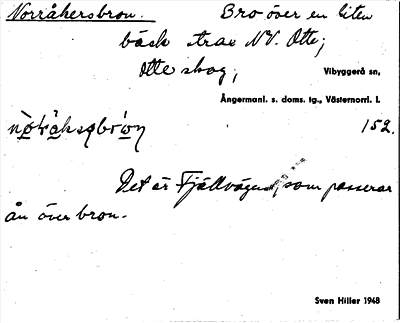 Norråkersbron. Bro över en liten
bäck strax NV. Otte;
Otte skog, Vibyggerå sn,
Ångermanl. s. doms. tg., Västernorrl. l.
152.
Det är Fjällvägen, som passerar
ån över bron.
Sven Hiller 1948